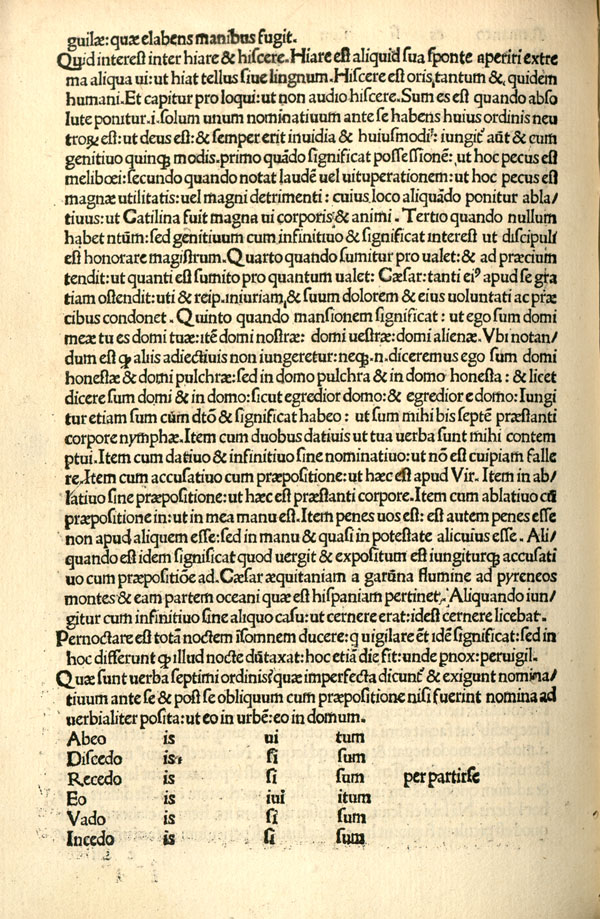 guilæ: quæ elabens manibus fugit.
Quid interest inter hiare & hiscere. Hiare est aliquid sua sponte aperiri extre
ma aliqua ui: ut hiat tellus siue lingnum. Hiscere est oris, tantum &, quidem
humani. Et capitur pro loqui: ut non audio hiscere. Sum es est quando abso
lute ponitur. i. solum unum nominatiuum ante se habens huius ordinis neu
troꝝ est: ut deus est: & semper erit inuidia & huiusmodi: iungit᷑ aūt & cum
genitiuo quinqꝫ modis. primo quādo significat possessionē: ut hoc pecus est
meliboei: secundo quando notat laudē uel uituperationem: ut hoc pecus est
magnæ utilitatis: uel magni detrimenti: cuius loco aliquādo ponitur abla/
tiuus: ut Catilina fuit magna ui corporis & animi. Tertio quando nullum
habet ntūm: sed genitiuum cum infinitiuo & significat interest ut discipuli
est honorare magistrum. Quarto quando sumitur pro ualet: & ad præcium
tendit: ut quanti est sumito pro quantum ualet: Cæsar: tanti eiꝰ apud se gra
tiam ostendit: uti & reip. iniuriam, & suum dolorem & eius uoluntati ac præ
cibus condonet. Quinto quando mansionem significat: ut ego sum domi
meæ tu es domi tuæ: itē domi nostræ: domi uestræ: domi alienæ. Vbi notan/
dum est ꝙ aliis adiectiuis non iungeretur: neqꝫ .n. diceremus ego sum domi
honestæ & domi pulchræ: sed in domo pulchra & in domo honesta: & licet
dicere sum domi & in domo: sicut egredior domo: & egredior e domo: Iungi
tur etiam sum cūm dtō & significat habeo: ut sum mihi bis septē præstanti
corpore nymphæ. Item cum duobus datiuis ut tua uerba sunt mihi contem
ptui. Item cum datiuo & infinitiuo sine nominatiuo: ut nō est cuipiam falle
re. Item cum accusatiuo cum præpositione: ut hæc est apud Vir. Item in ab/
latiuo sine præpositione: ut hæc est præstanti corpore. Item cum ablatiuo cū
præpositione in: ut in mea manu est. Item penes uos est: est autem penes esse
non apud aliquem esse: sed in manu & quasi in potestate alicuius esse. Ali/
quando est idem significat quod uergit & expositum est iungiturqꝫ accusati
uo cum præpositiōe ad. Cæsar æquitaniam a garūna flumine ad pyreneos
montes & eam partem oceani quæ est hispaniam pertinet. Aliquando iun/
gitur cum infinitiuo sine aliquo casu: ut cernere erat: idest cernere licebat.
Pernoctare est totā noctem īsomnem ducere: q uigilare ēt idē significat: sed in
hoc differunt ꝙ illud nocte dūtaxat: hoc etiā die fit: unde pnox: peruigil.
Quæ sunt uerba septimi ordinisꝰ quæ imperfecta dicunt᷑ & exigunt nomina/
tiuum ante se & post se obliquum cum præpositione nisi fuerint nomina ad
uerbialiter posita: ut eo in urbē: eo in domum.
Abeo is ui tum
Discedo is si sum
Recedo is si sum per partirse
Eo is iui itum
Vado is si sum
Incedo is si sum